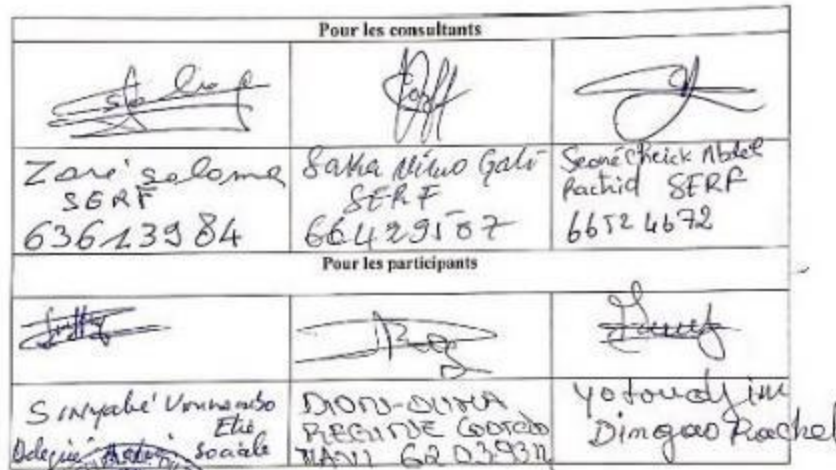 Pour les consultants
Zaré Salomé
SERF
63613984
Saka Nino Gali
SERF
66429507
Seoné Cheick Abdel
Rachid SERF
66524672
Pour les participants
Sinyabé
Elie
Délégué Sociale
DION-
REGINE
NAVI
Yotoudjim
Dingao Rachel